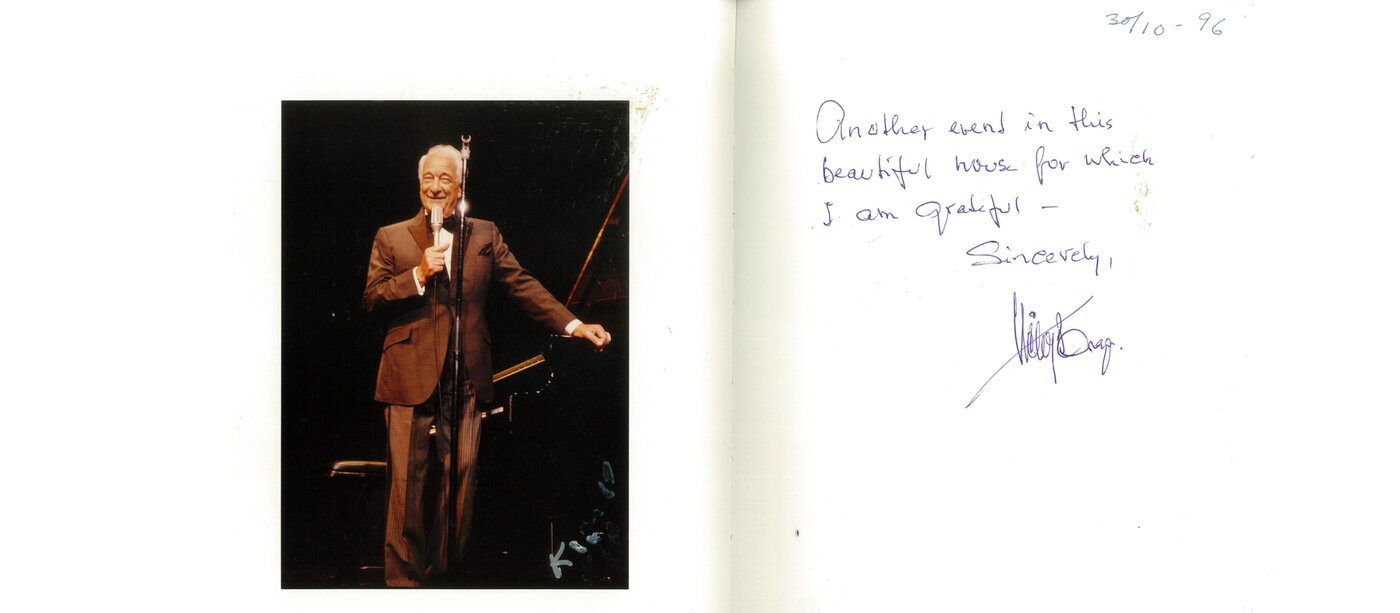 30/10 - 96
Another event in this
beautiful house for which
I am grateful –
Sincerely,